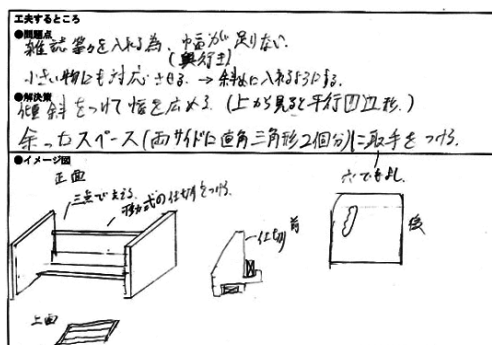 工夫するところ
●問題点
雑誌等々を入れる為、巾が足りない。
(奥行き)
小さい物にも対応させる。→ 斜めに入れるようにする。
●解決策
傾斜をつけて幅を広める。(上から見ると平行四辺形。)
余ったスペース(両サイドに直角三角形2個分)に取手をつける。
穴でもよし。
●イメージ図
正面
三点で支える。
移動式の仕切をつける。
仕切
前
後
上面